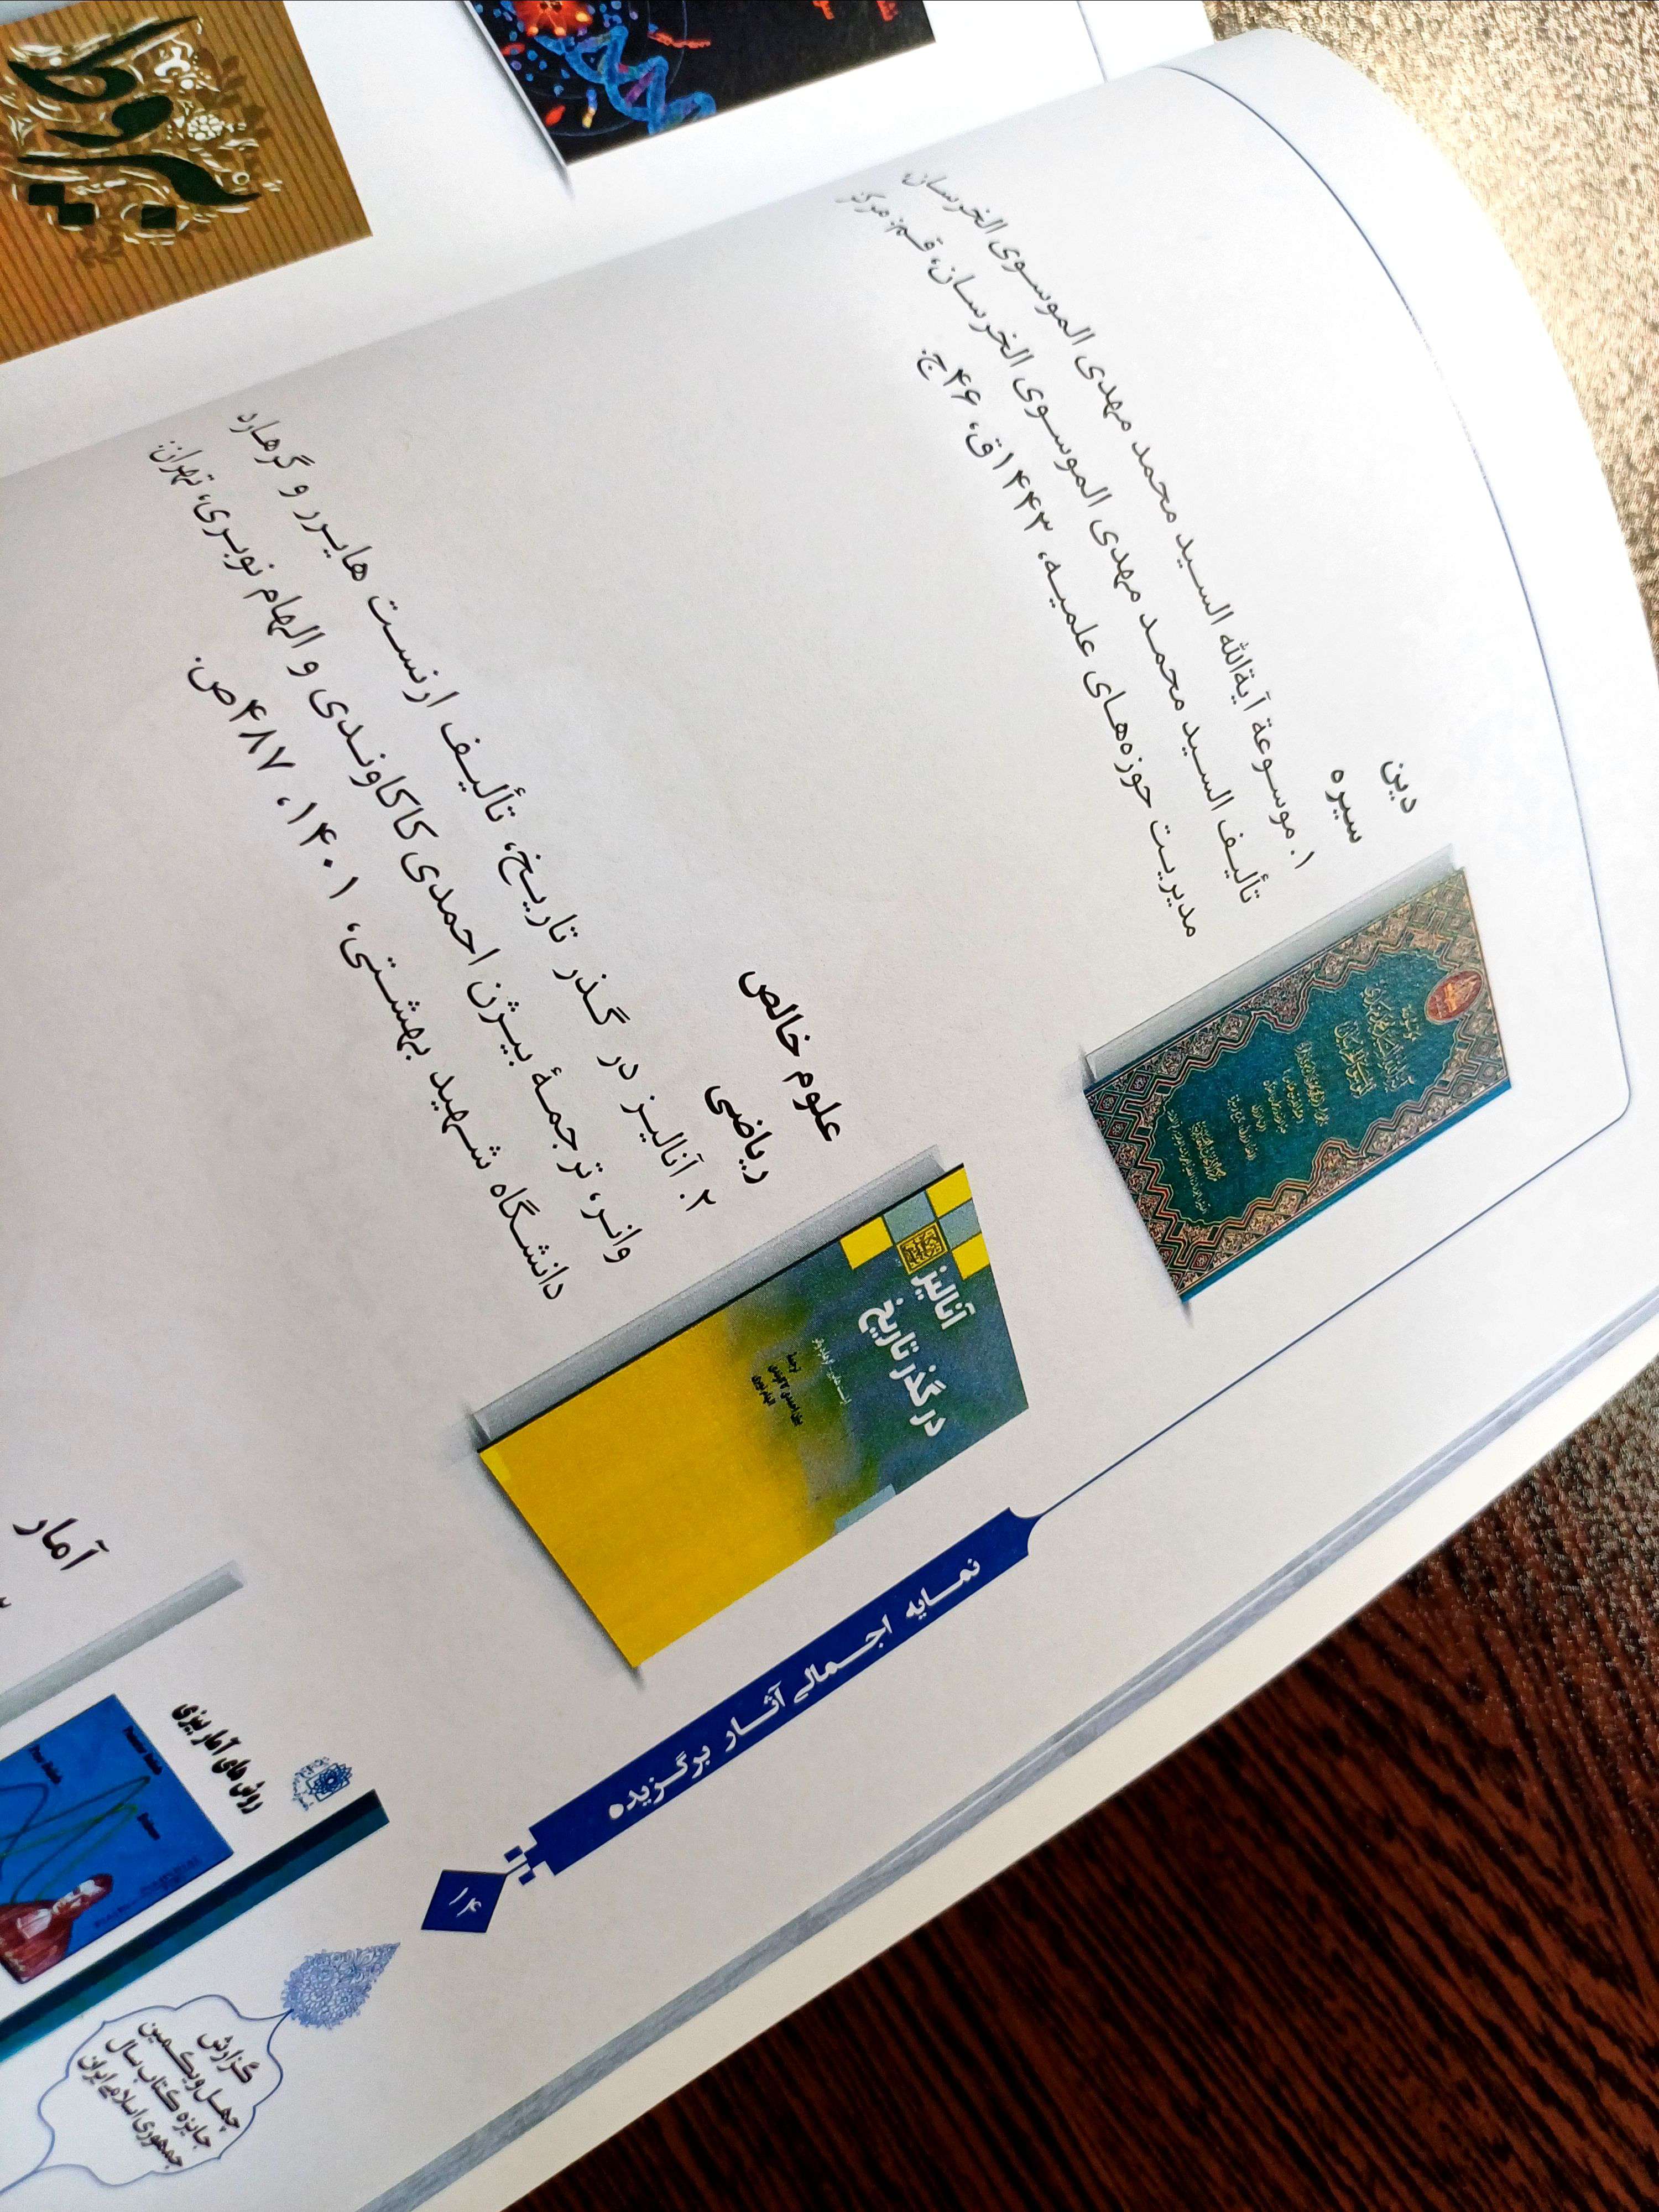 نمایه اجمالی آثار برگزیده
۱۴
دین
سیره
۱. موسوعة آیةالله السید محمد مهدی الموسوی الخرسان،
تألیف السید محمد مهدی الموسوی الخرسان، قم: مرکز
مدیریت حوزه‌های علمیه، ۱۴۴۳ق، ۴۶ج.
علوم خالص
ریاضی
۲. آنالیز در گذر تاریخ، تألیف ارنست هایرر و گرهارد
وانر، ترجمهٔ بیژن احمدی کاکاوندی و الهام نوبری، تهران:
دانشگاه شهید بهشتی، ۱۴۰۱، ۴۸۷ص.
آنالیز
در گذر تاریخ
ترجمهٔ
آمار
روش های آمار بیزی
گزارش
چهل ویکمین
جایزه کتاب سال
جمهوری اسلامی ایران